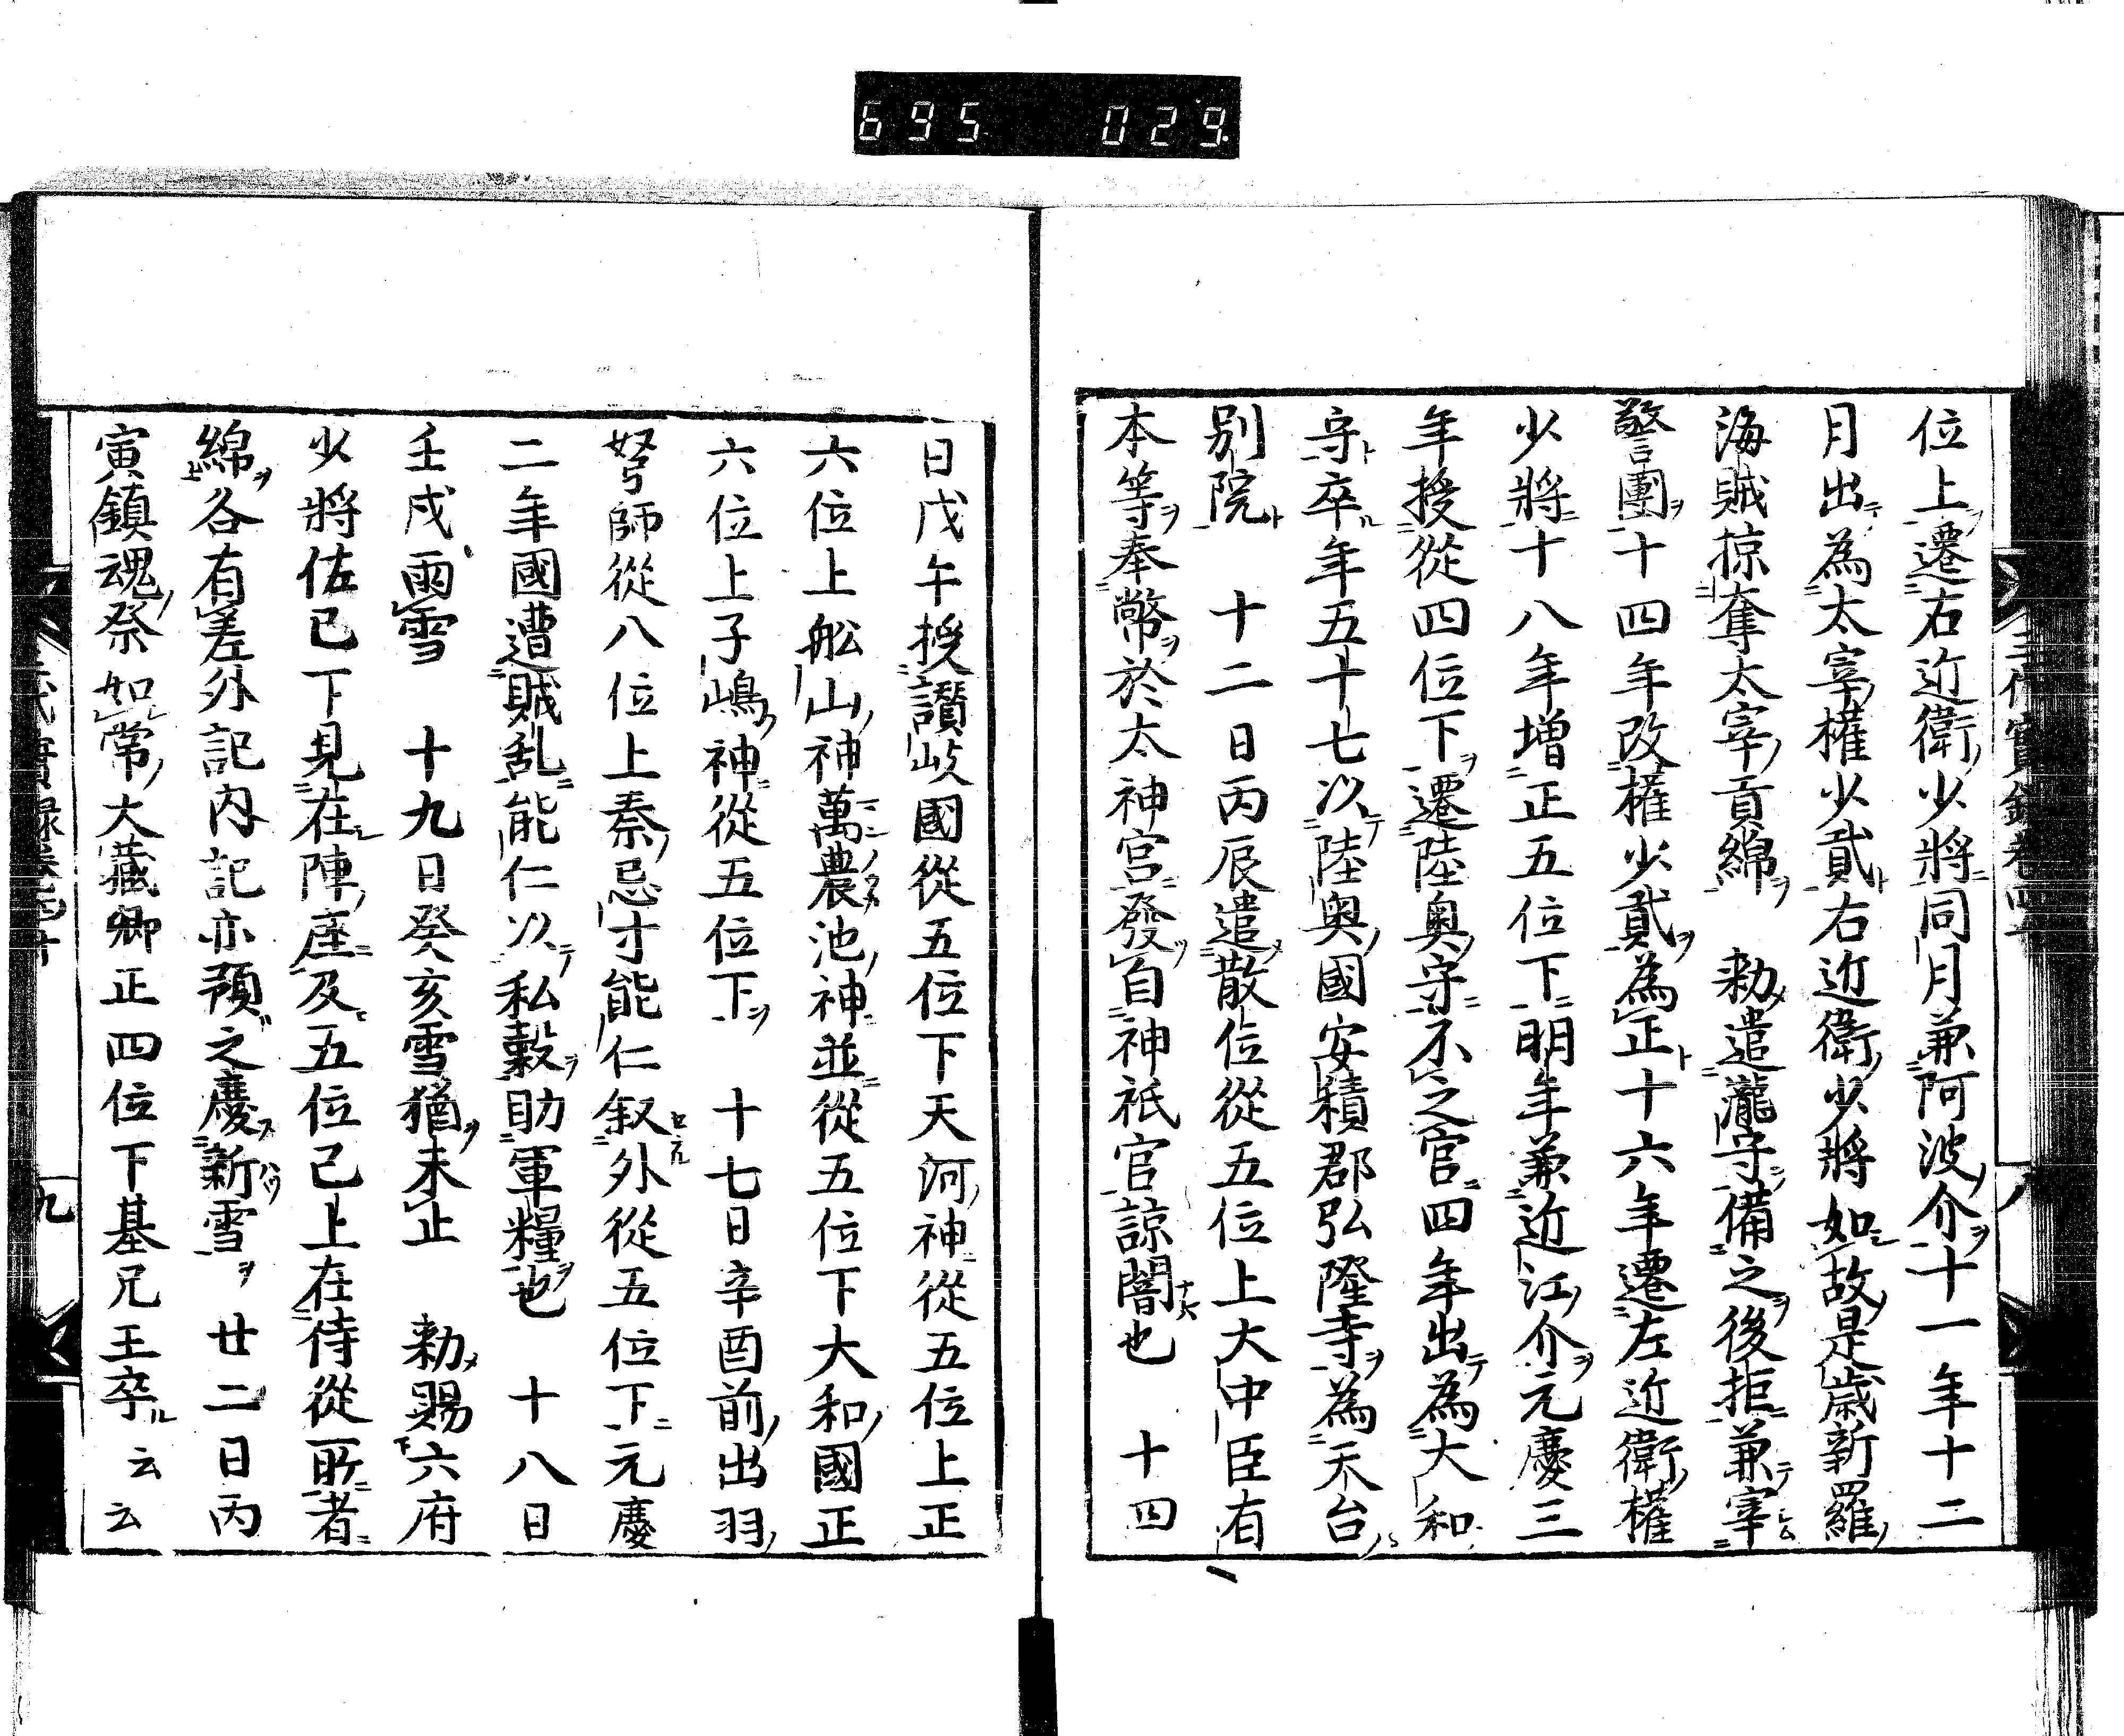 695 029
位上遷右近衛少將同月兼阿波介十一年十二
月出為太宰權少貳右近衛少將如故是歳新羅
海賊掠奪太宰貢綿　勑遣瀧守備之後拒兼宰
警團十四年改權少貳為正十六年遷左近衛權
少將十八年増正五位下明年兼近江介元慶三
年授從四位下遷陸奥守不之官四年出為大和
守卒年五十七以陸奥國安積郡弘隆寺為天台
別院　十二日丙辰遣散位從五位上大中臣有
本等奉幣於太神宮發自神祇官諒闇也　十四
日戊午授讃岐國從五位下天河神從五位上正
六位上舩山神萬農池神並從五位下大和國正
六位上子嶋神從五位下　十七日辛酉前出羽
弩師從八位上秦忌寸能仁叙外從五位下元慶
二年國遭賊乱能仁以私穀助軍糧也　十八日
壬戌雨雪　十九日癸亥雪猶未止　勑賜六府
少將佐已下見在陣座及五位已上在侍從所者
綿各有差外記内記亦預之慶新雪　廿二日丙
寅鎮魂祭如常大藏卿正四位下基兄王卒云云
九